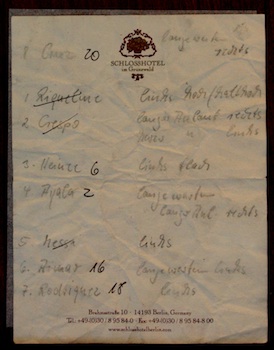 lange warten
8 Cruz 20 rechts
SCHLOSSHOTEL
im Grunewald
1 Riquelme links hoch
2. Crespo lang Anlauf rechts
links
3. Heinze 6 links flach
4 Ayala 2 lange warten
rechts
5. links
6. Aimar 16 lange warten links
7. Rodriguez 18 links
10 · 14193 Berlin, Germany
Tel.: +49.(0)30 / 8 95 84-0 · Fax +49.(0)30 / 8 95 84
www.schlosshotelberlin.com